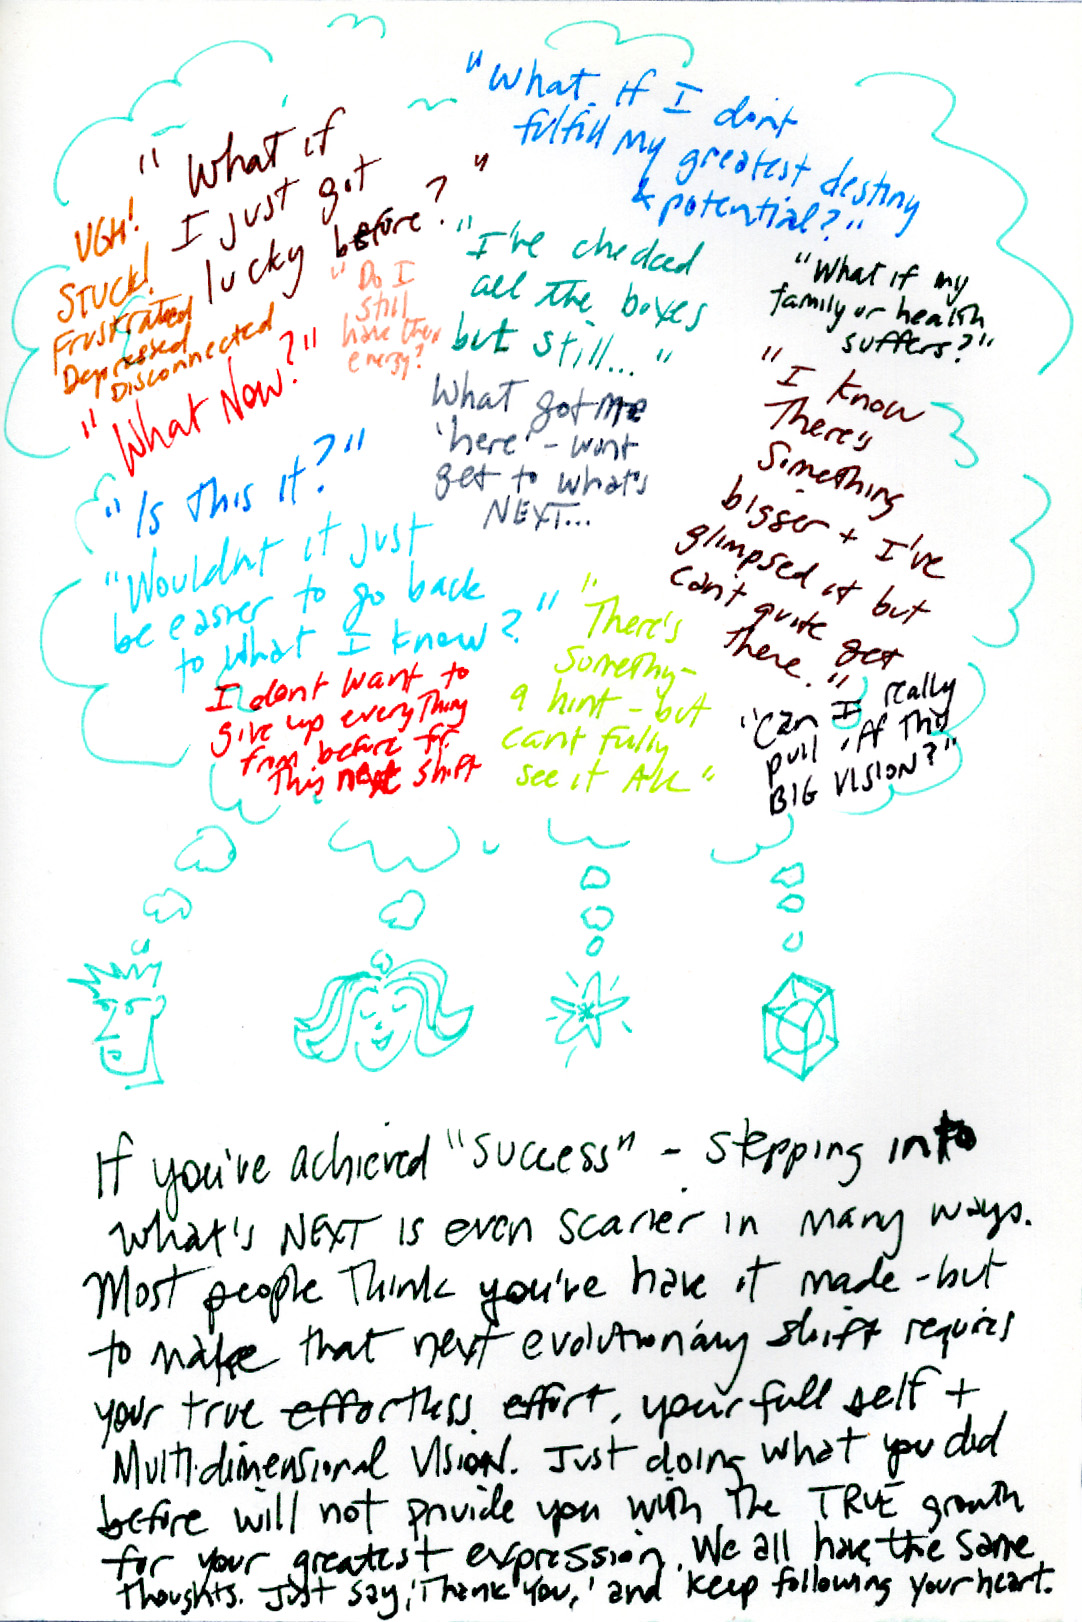 "What if
I just got
lucky before?"
"What if I don't
fulfill my greatest destiny
& potential?"
UGH!
STUCK!
Frustrated
Depressed
Disconnected
"Do I
still
have the
energy?
"I've checked
all the boxes
but still..."
"What if my
family or health
suffers?"
"What Now?"
What got me
'here' - wont
get to what's
NEXT...
"I know
There's
Something
bigger + I've
glimpsed it but
can't quite get
there."
"Is this it?"
"Wouldnt it just
be easier to go back
to what I know?"
"There's
Somethg-
a hint - but
cant fully
see it ALL"
I dont want to
give up everything
from before for
This next shift
"Can I really
pull off this
BIG VISION?"
If you've achieved "success" - stepping into
what's NEXT is even scarier in many ways.
Most people Think you've have it made - but
to make that next evolutionary shift requires
your true effortless effort, your full self +
Multi-dimensional Vision. Just doing what you did
before will not provide you with the TRUE growth
for your greatest expression. We all have the same
Thoughts. Just say, 'Thank You,' and keep following your heart.